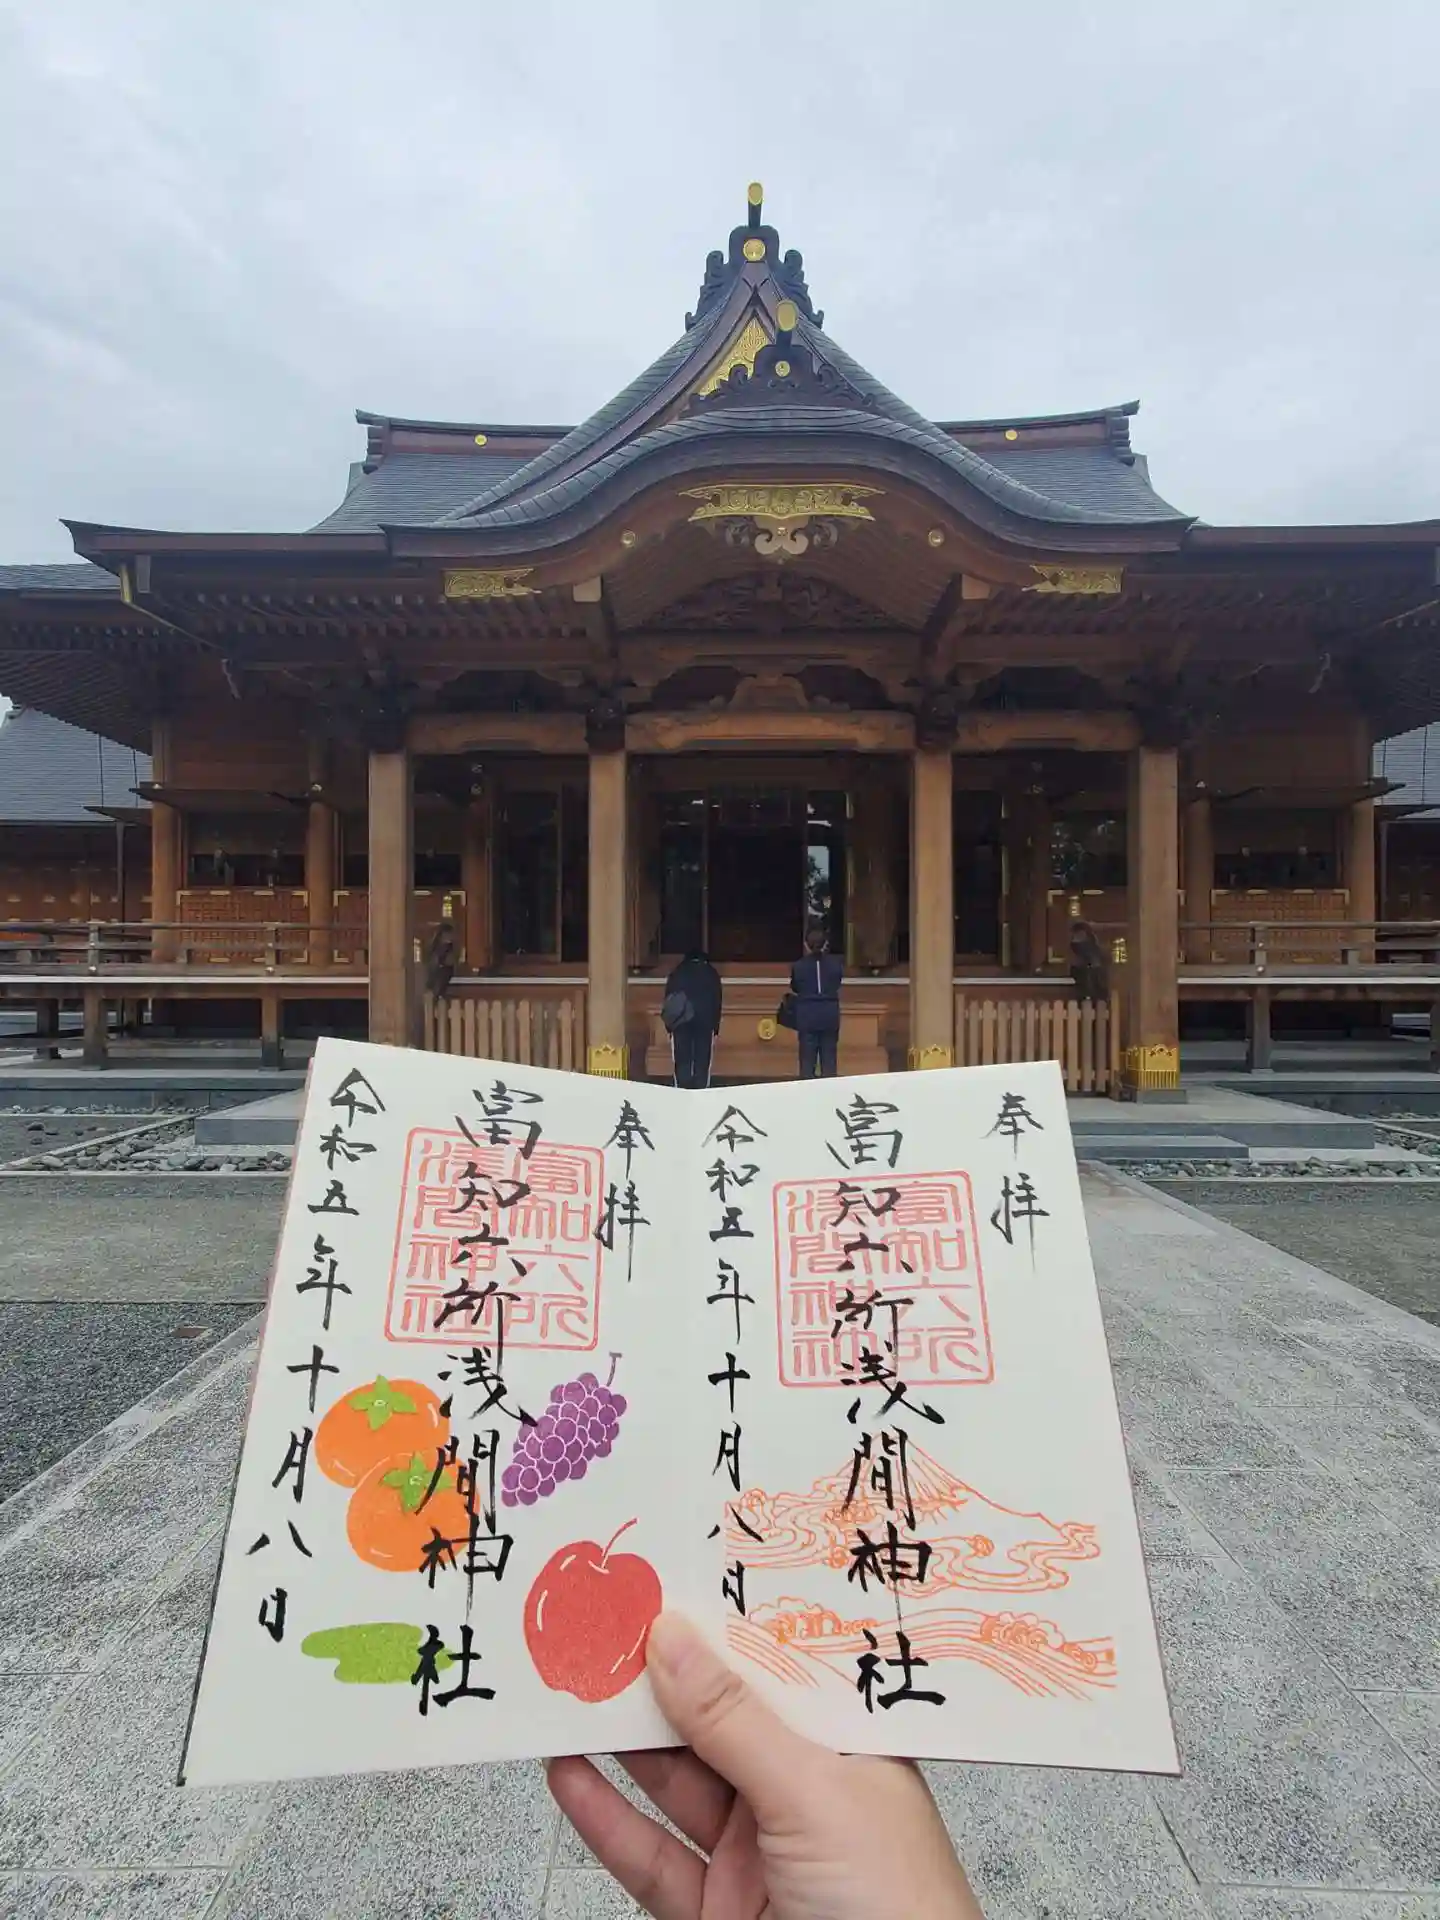 奉拝
富知六所浅間神社
令和五年十月八日
富知六所浅間神社
奉拝
富知六所浅間神社
令和五年十月八日
富知六所浅間神社